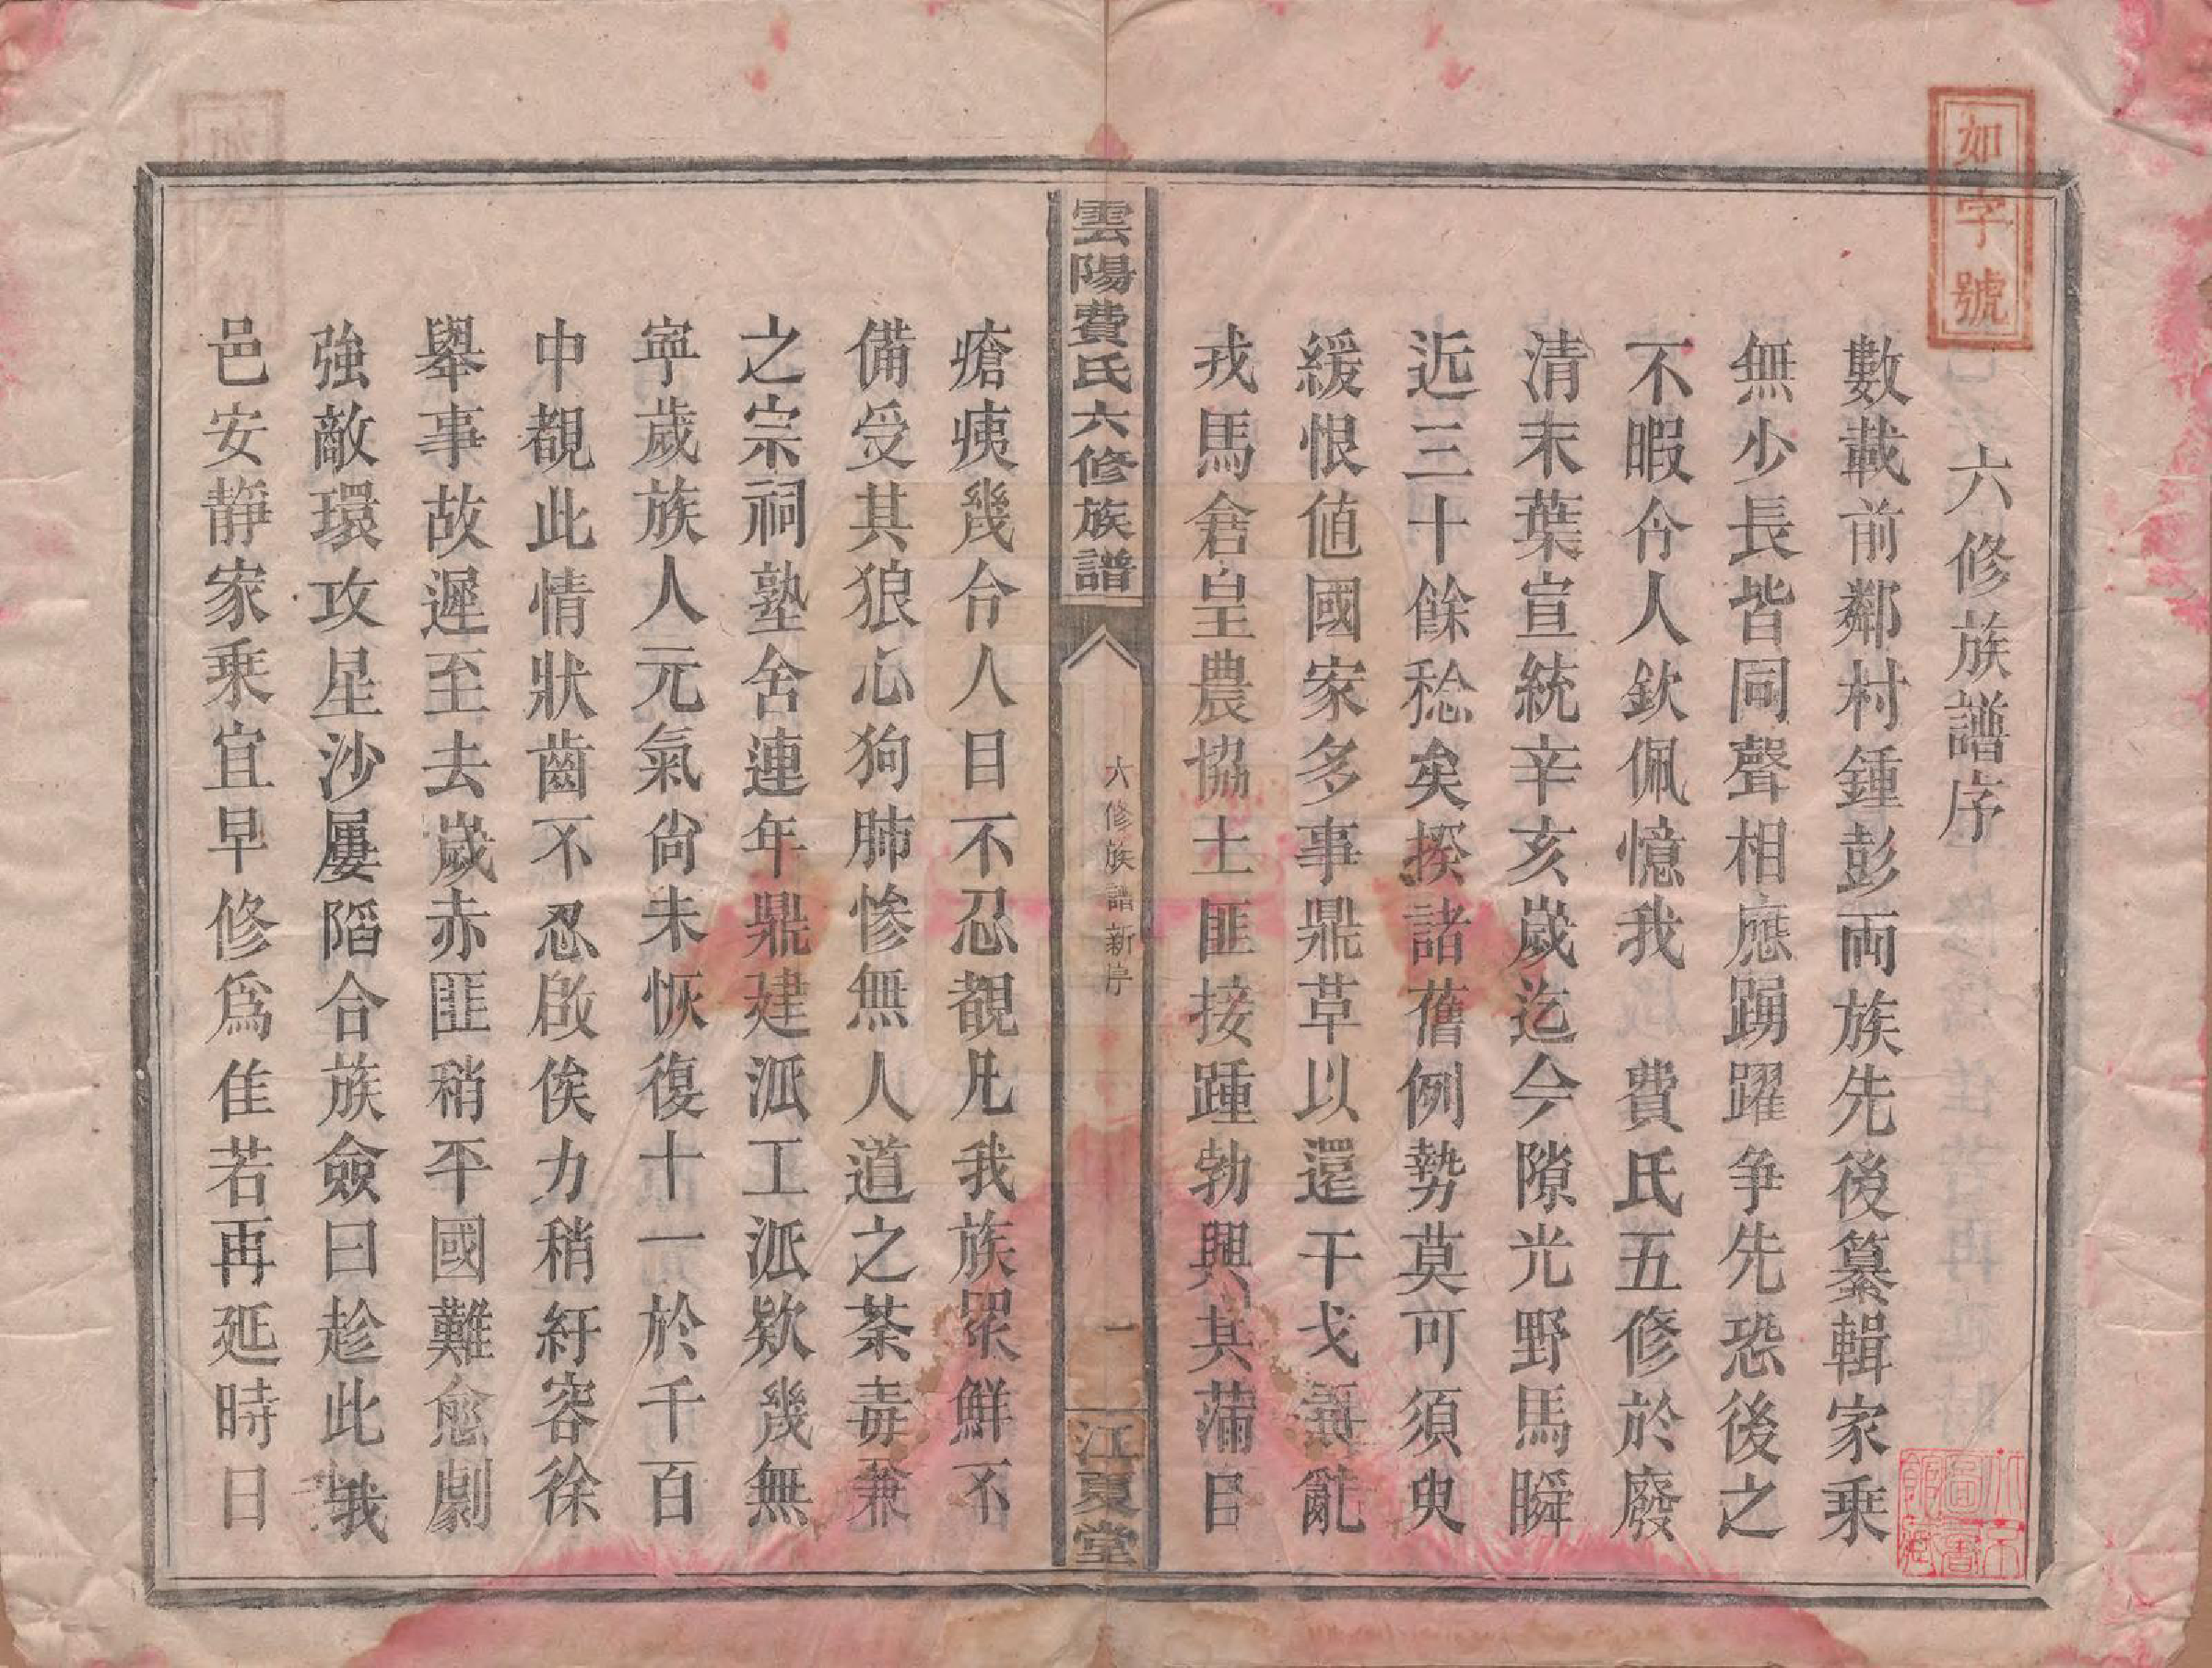 如字號
六修族譜序
數載前鄰村鍾彭兩族先後纂輯家乘
無少長皆同聲相應踴躍爭先恐後之
不暇令人欽佩憶我 費氏五修於廢
清末葉宣統辛亥歲迄今隙光野馬瞬
近三十餘稔矣揆諸舊例勢莫可須臾
緩恨值國家多事鼎革以還干戈擾亂
戎馬倉皇農協土匪接踵勃興其滿目
雲陽費氏六修族譜
六修族譜新序
一
江夏堂
瘡痍幾令人目不忍覩凡我族眾鮮不
備受其狼心狗肺慘無人道之荼毒兼
之宗祠塾舍連年鼎建派工派欵幾無
寧歲族人元氣尙未恢復十一於千百
中覩此情狀齒不忍啟俟力稍紓容徐
舉事故遲至去歲赤匪稍平國難愈劇
強敵環攻星沙屢陷合族僉曰趁此我
邑安靜家乘宜早修爲佳若再延時日